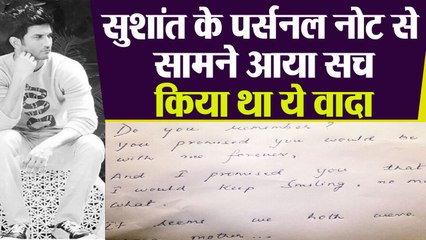 सुशांत के पर्सनल नोट से
सामने आया सच
किया था ये वादा
Do you remember?
You promised you would be
with me forever,
And I promised you that
I would keep smiling, no ma
what.
It seems we both were
mother...